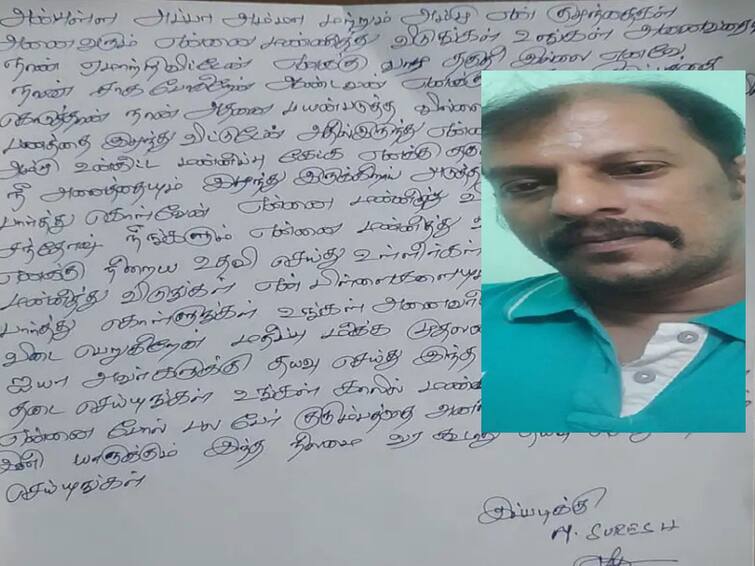 அன்புள்ள அப்பா அம்மா மற்றும் என் குழந்தைகள்
அனைவரும் என்னை மன்னித்து விடுங்கள் உங்கள் அனைவரையும்
நான் ஏமாற்றிவிட்டேன் எனக்கு வாழ தகுதி இல்லை எனவே
நான் சாக போகிறேன் ஆண்டவன் எனக்கு
கொடுத்தான் நான் அதனை பயன்படுத்த வில்லை
பணத்தை இழந்து விட்டேன் அதிலிருந்து என்னை
உன்கிட்ட மன்னிப்பு கேட்க எனக்கு
நீ அனைத்தையும் இழந்து இருக்கிறாய் அடுத்த
பார்த்து கொள்வேன் என்னை மன்னித்து
சந்தோஷ் நீங்களும் என்னை மன்னித்து
எனக்கு நிறைய உதவி செய்து உள்ளீர்கள்
மன்னித்து விடுங்கள் என் பிள்ளைகளையும்
பார்த்து கொள்ளுங்கள் உங்கள் அனைவரிடமும்
விடை பெறுகிறேன் மதிப்பு மிக்க முதல்வர்
ஐயா அவர்களுக்கு தயவு செய்து இந்த
தடை செய்யுங்கள் உங்கள் காலில்
என்னை போல் பல பேர் குடும்பத்தை
இனி யாருக்கும் இந்த நிலமை வர கூடாது
செய்யுங்கள்
இப்படிக்கு
M. SURESH